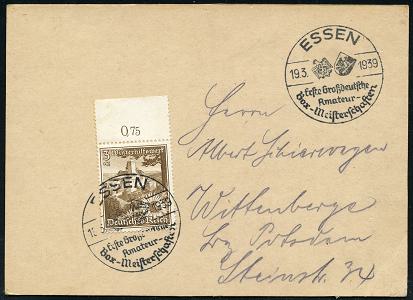 ESSEN
19.3. 1939
Erste Großdeutsche
Amateur-
Box-Meisterschaften
0,75
3
Winterhilfswerk
Deutsches Reich
ESSEN
Erste Groß
Amateur-
Box-Meisterschaften
Herrn
Albert
Wittenberge
Bez Potsdam
Steinstr. 34